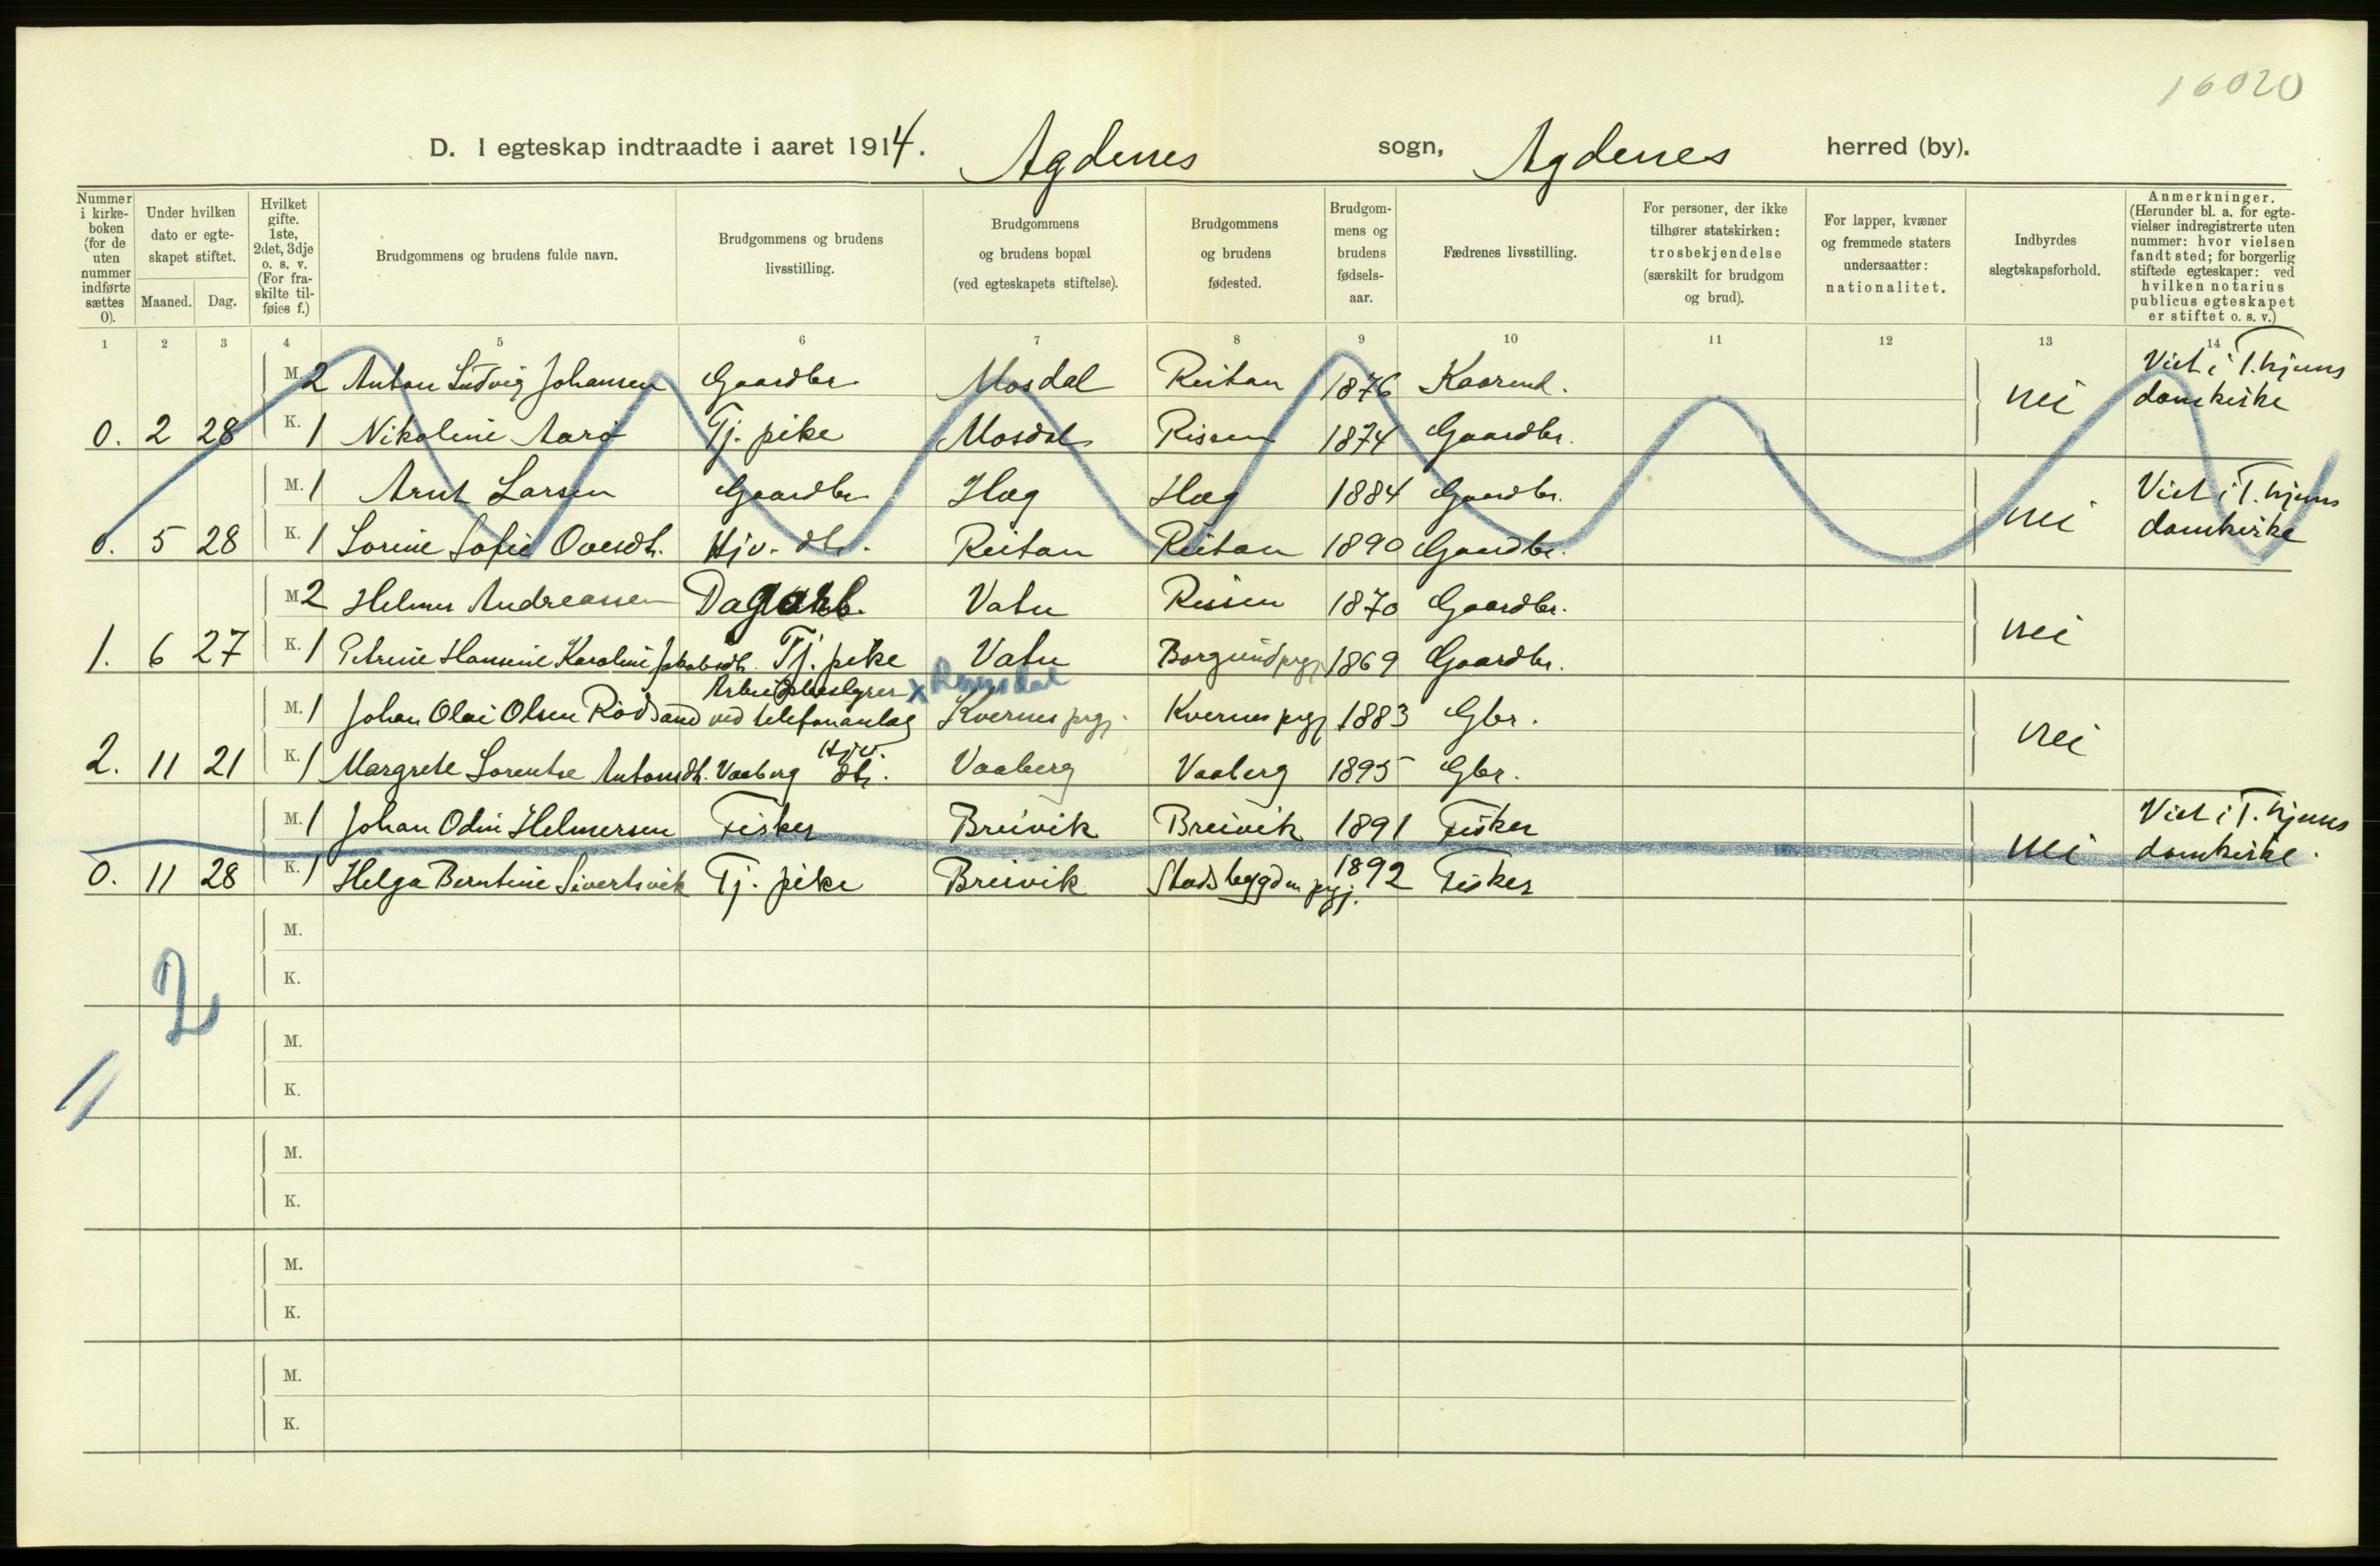 16020
D. I egteskap indtraadte i aaret 1914. Agdenes sogn, Agdenes herred (by).
Nummer i kirke-boken (for de uten nummer indførte sættes 0).
Under hvilken dato er egte-skapet stiftet.
Maaned. Dag.
Hvilket gifte. 1ste, 2det, 3dje o. s. v. (For fra-skilte til-føies f.)
Brudgommens og brudens fulde navn.
Brudgommens og brudens livsstilling.
Brudgommens og brudens bopæl (ved egteskapets stiftelse).
Brudgommens og brudens fødested.
Brudgom-mens og brudens fødsels-aar.
Fædrenes livsstilling.
For personer, der ikke tilhører statskirken: trosbekjendelse (særskilt for brudgom og brud).
For lapper, kvæner og fremmede staters undersaatter: nationalitet.
Indbyrdes slegtskapsforhold.
Anmerkninger. (Herunder bl. a. for egte-vielser indregistrerte uten nummer: hvor vielsen fandt sted; for borgerlig stiftede egteskaper: ved hvilken notarius publicus egteskapet er stiftet o. s. v.)
1 2 3 4 5 6 7 8 9 10 11 12 13 14
M. 2 Anton Ludvig Johansen Gaardbr. Mosdal Reitan 1876 Kaarmd. nei Viet i T.hjems
0. 2 28 K. 1 Nikoline Aarø Tj. pike Mosdal Rissen 1874 Gaardbr. domkirke
M. 1 Arnt Larsen Gaardbr. Hæg Hæg 1884 Gaardbr. nei Viet i T.hjems
0. 5 28 K. 1 Lorine Sofie Ovesdt. Hjv. dtr. Reitan Reitan 1890 Gaardbr. domkirke
M. 2 Helmer Andreassen Dagarb. Vatn Rissen 1870 Gaardbr. nei
1. 6 27 K. 1 Petrine Hansine Karoline Jakobsdt. Tj. pike Vatn Borgund prgj. 1869 Gaardbr.
Arbeidsbestyrer x Romsdal
M. 1 Johan Olai Olsen Rødsand ved telefonanlæg Kvernes prgj. Kvernes prgj. 1883 Gbr. nei
2. 11 21 K. 1 Margrete Lorentse Antonsdt. Vaaberg Hjv. dtr. Vaaberg Vaaberg 1895 Gbr.
M. 1 Johan Odin Helmersen Fisker Breivik Breivik 1891 Fisker nei Viet i T.hjems
0. 11 28 K. 1 Helga Berntine Sivertsvik Tj. pike Breivik Stadsbygden prgj. 1892 Fisker domkirke.
M.
K.
2
M.
K.
M.
K.
M.
K.
M.
K.